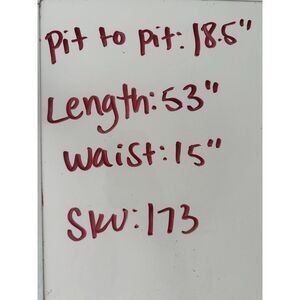 Pit to pit: 18.5"
Length: 53"
Waist: 15"
SKU: 173